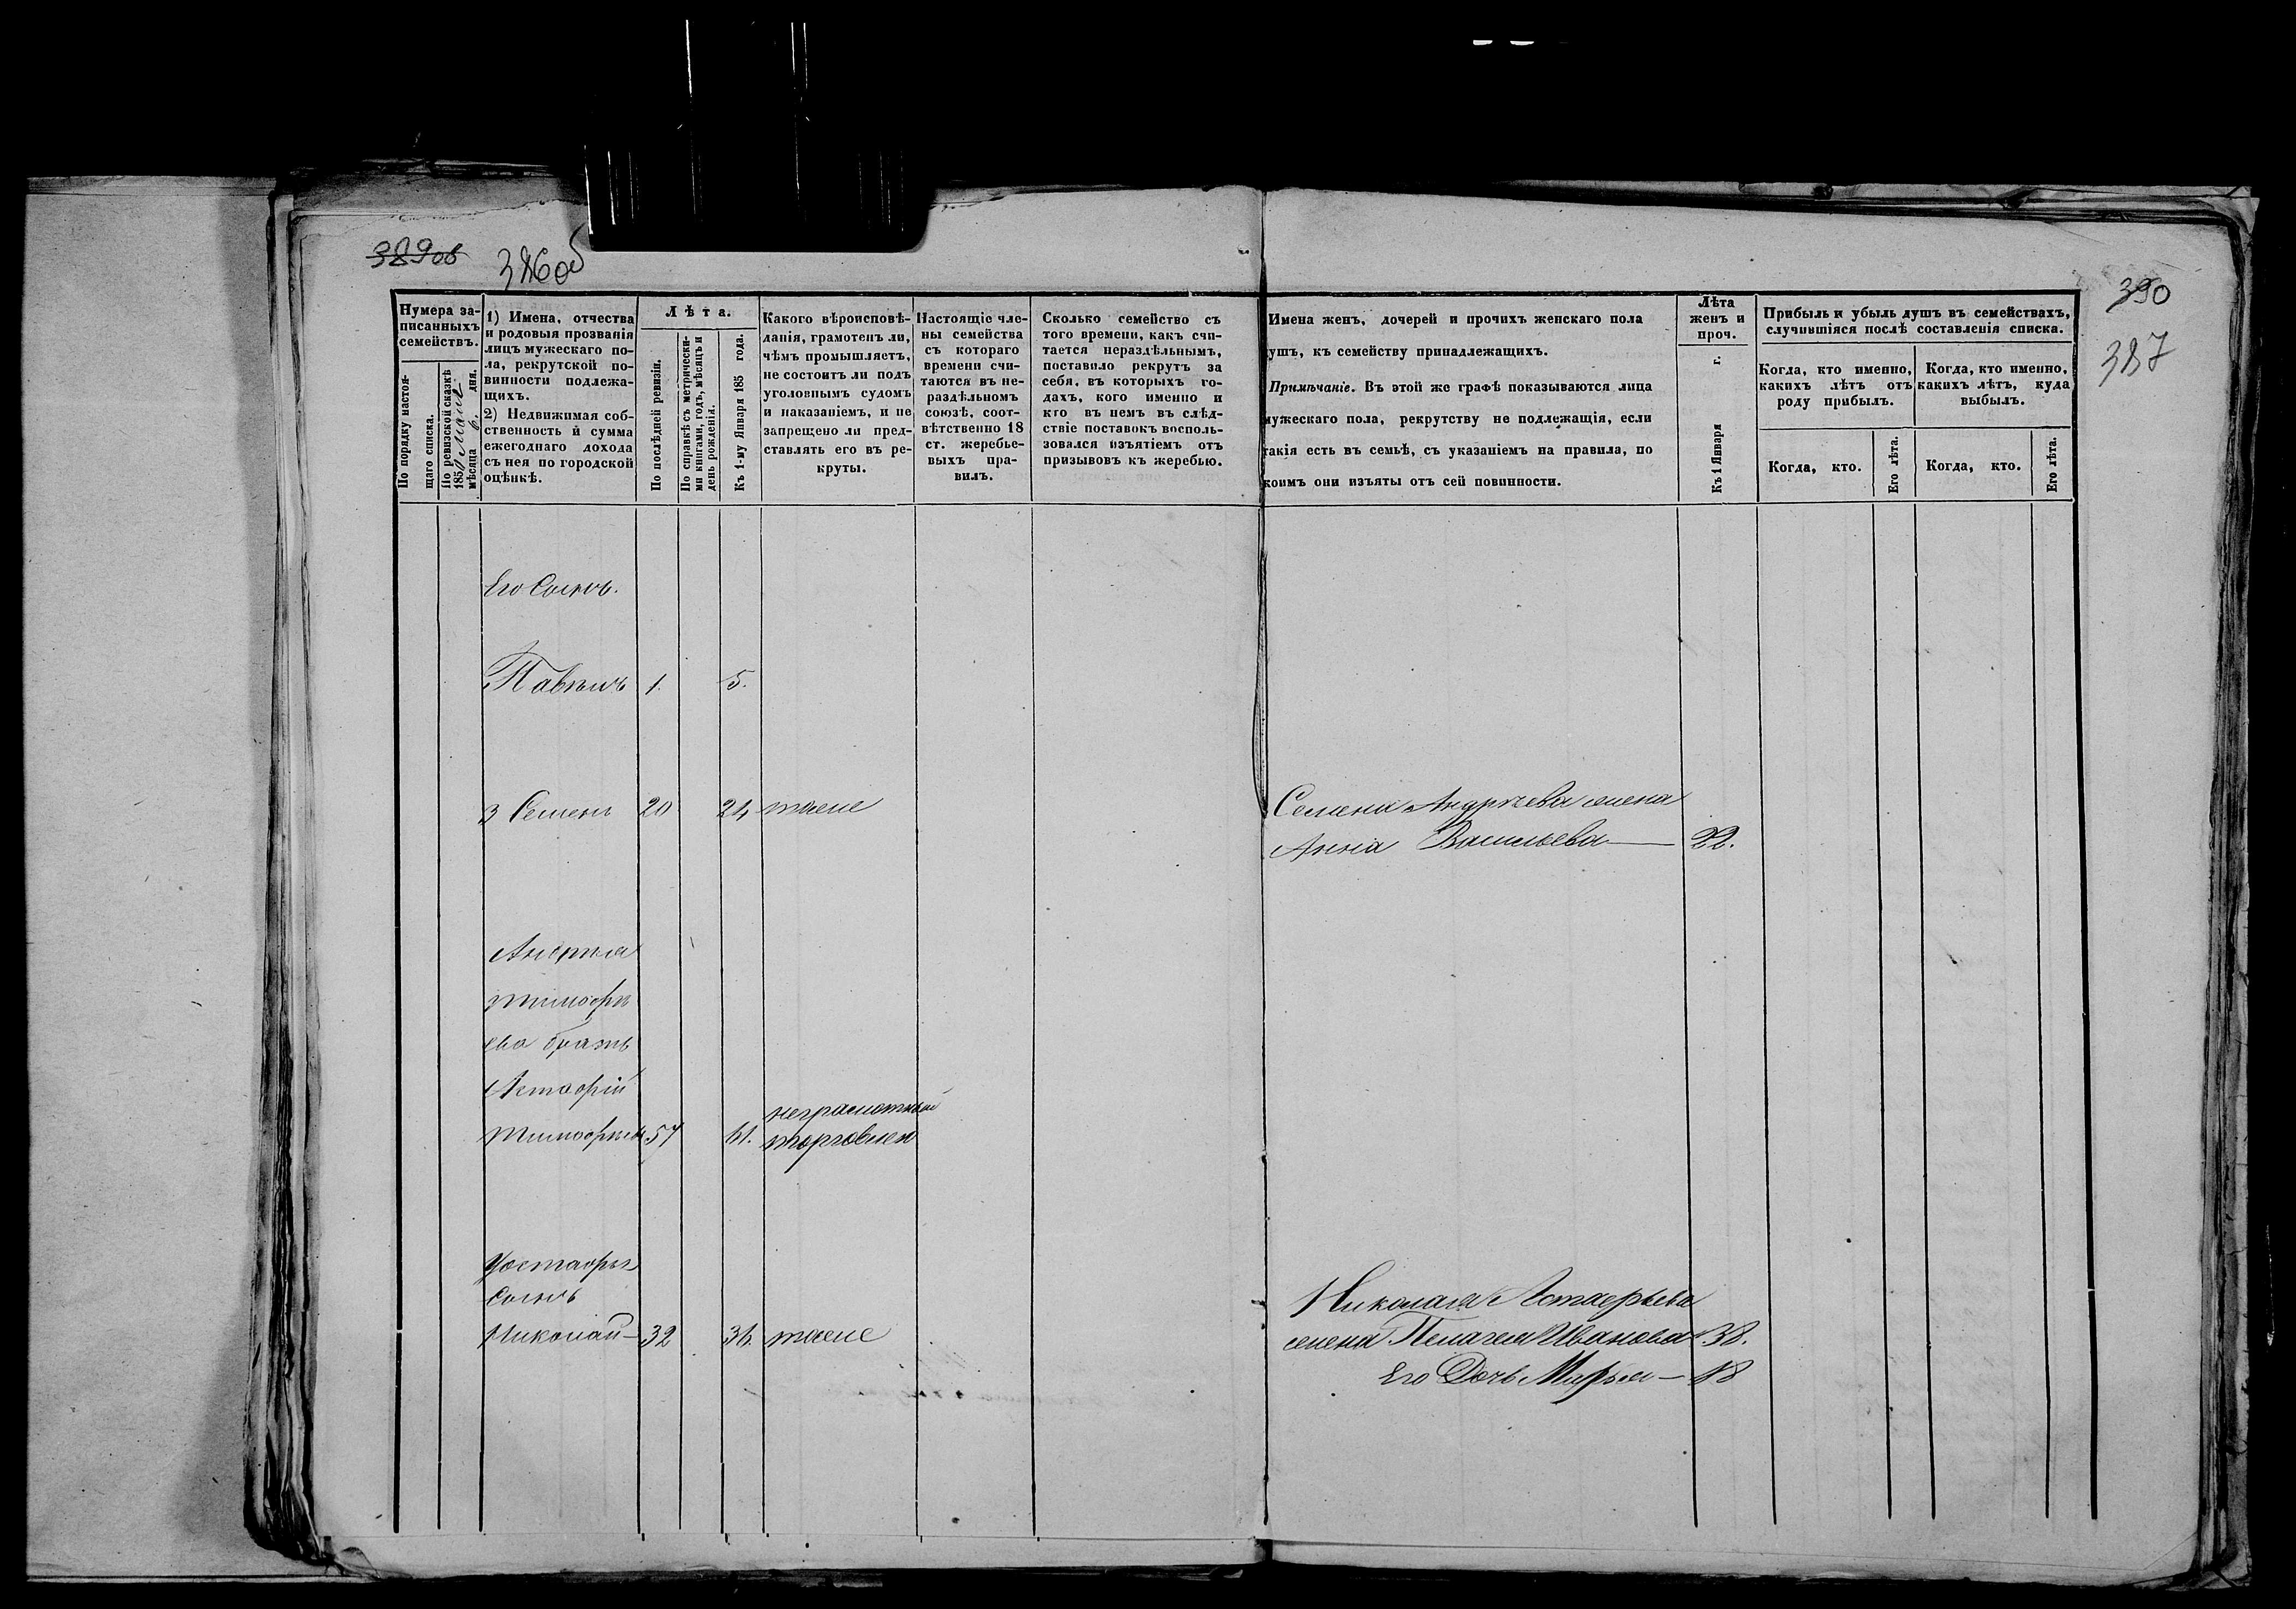 389об
386об
390
387
Нумера за-
писанныхъ
семействъ.
По порядку настоя-
щаго списка.
По ревизской сказкѣ
185
мѣсяца 6. дня.
1) Имена, отчества
и родовыя прозванія
лицъ мужескаго по-
ла, рекрутской по-
винности подлежа-
щихъ.
2) Недвижимая соб-
ственность и сумма
ежегоднаго дохода
съ нея по городской
оцѣнкѣ.
Лѣта.
По послѣдней ревизіи.
По справкѣ съ метрически-
ми книгами, годъ, мѣсяцъ и
день рожденія.
Къ 1-му Января 185 года.
Какого вѣроисповѣ-
данія, грамотенъ ли,
чѣмъ промышляетъ,
не состоитъ ли подъ
уголовнымъ судомъ
и наказаніемъ, и не
запрещено ли пред-
ставлять его въ ре-
круты.
Настоящіе чле-
ны семейства
съ котораго
времени счи-
таются въ не-
раздѣльномъ
союзѣ, соот-
вѣтственно 18
ст. жеребье-
выхъ пра-
вилъ.
Сколько семейство съ
того времени, какъ счи-
тается нераздѣльнымъ,
поставило рекрутъ за
себя, въ которыхъ го-
дахъ, кого именно и
кто въ немъ въ слѣд-
ствіе поставокъ восполь-
зовался изъятіемъ отъ
призывовъ къ жеребью.
Имена женъ, дочерей и прочихъ женскаго пола
душъ, къ семейству принадлежащихъ.
Примѣчаніе. Въ этой же графѣ показываются лица
мужескаго пола, рекрутству не подлежащія, если
такія есть въ семьѣ, съ указаніемъ на правила, по
коимъ они изъяты отъ сей повинности.
Лѣта
женъ и
проч.
Къ 1 Января г.
Прибыль и убыль душъ въ семействахъ,
случившіяся послѣ составленія списка.
Когда, кто именно,
какихъ лѣтъ отъ
роду прибылъ.
Когда, кто именно,
какихъ лѣтъ, куда
выбылъ.
Когда, кто.
Его лѣта.
Когда, кто.
Его лѣта.
Его Сынъ.
Павелъ 1. 5.
3 Семенъ 20 24 тоже
Семена Андреева жена
Анна Васильева 22.
Андрея
Тимофѣ
ева братъ
Астафій
неграмотный
Тимофѣевъ 57 61. торговлею
Уостафья
Сынъ
Николай 32 36. тоже
Николая Астафьева
жена Пелагея Иванова 38.
Его Дочь Марья 18